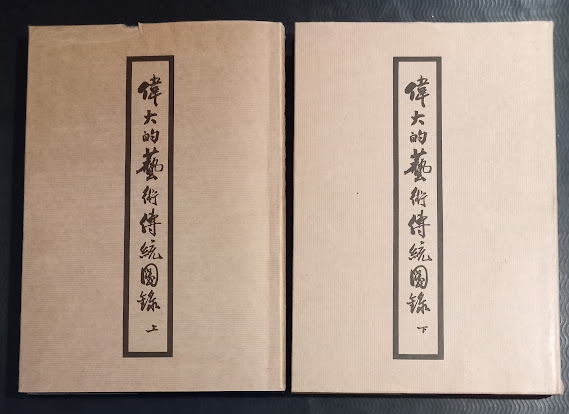 偉大的藝術傳統圖錄 上
偉大的藝術傳統圖錄 下